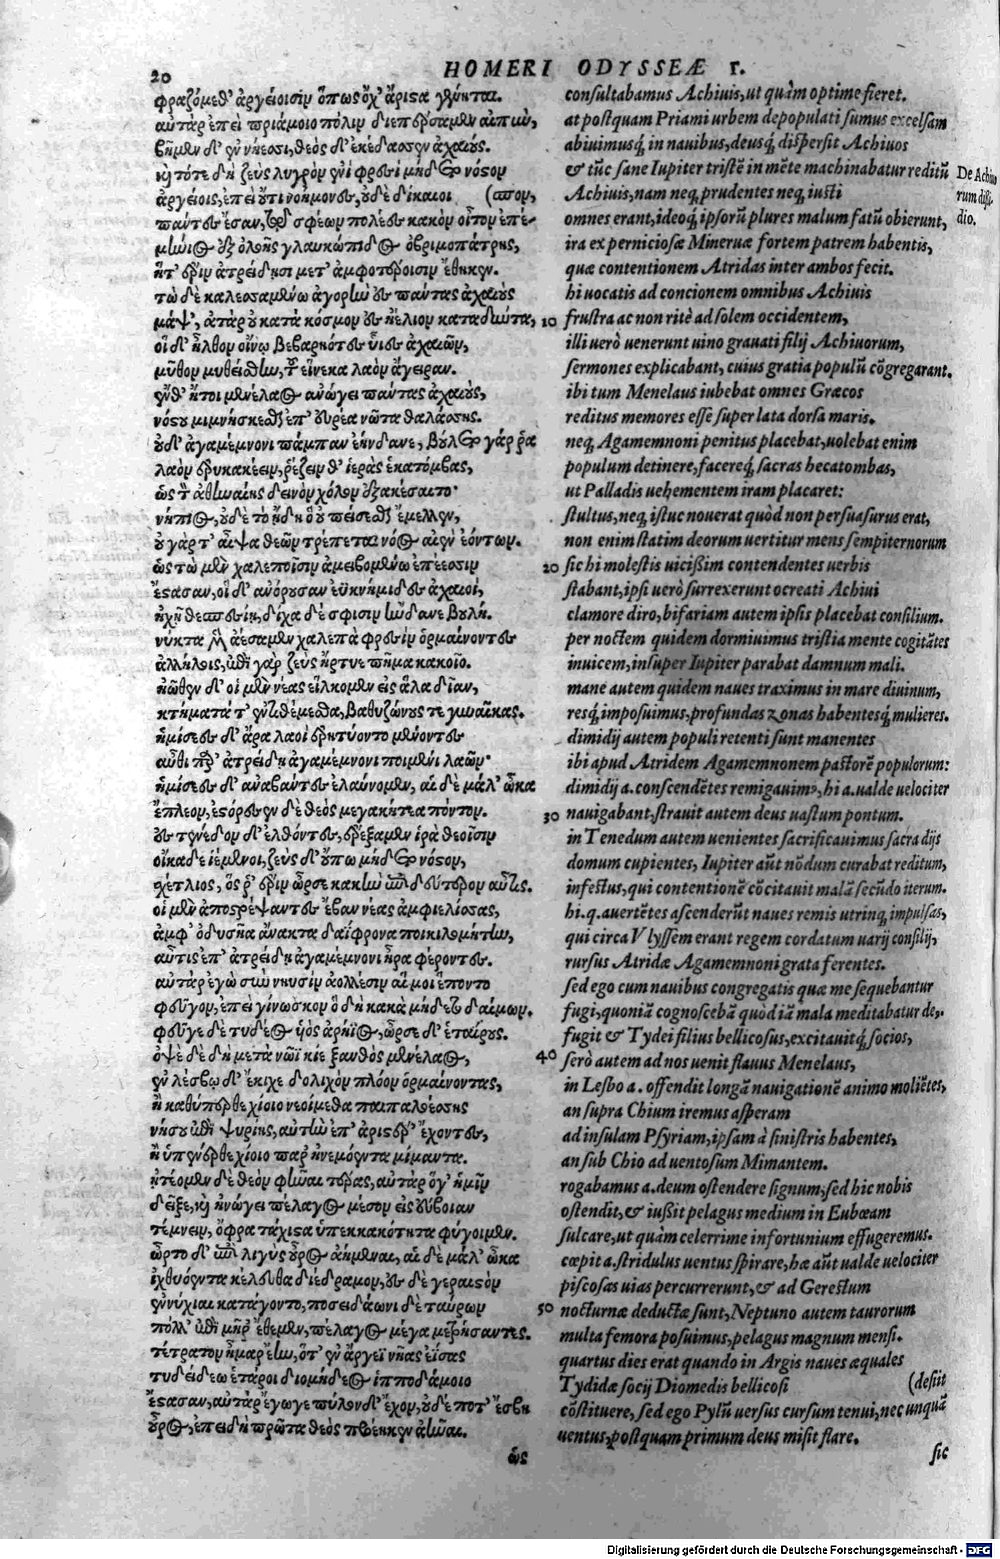 20 HOMERI ODYSSEÆ Γ.
φραζόμεθ' ἀργείοισιν ὅπως ὄχ' ἄριστα γένηται.
αὐτὰρ ἐπεὶ πριάμοιο πόλιν διεπέρσαμεν αἰπὺν,
βῆμεν δ' ἐν νήεσσι, θεὸς δ' ἐκέδασσεν ἀχαιούς.
καὶ τότε δὴ ζεὺς λυγρὸν ἐνὶ φρεσὶ μήδετο νόστον
ἀργείοις, ἐπεὶ οὔτι νοήμονες, οὐδὲ δίκαιοι (σπον,
πάντες ἔσαν, τῷ σφέων πολέες κακὸν οἶτον ἐπέ-
μήνιος ἐξ ὀλοῆς γλαυκώπιδος ὀβριμοπάτρης,
ἥτ' ἔριν ἀτρείδῃσι μετ' ἀμφοτέροισιν ἔθηκεν.
τὼ δὲ καλεσσαμένω ἀγορὴν ἐς πάντας ἀχαιοὺς
μάψ', ἀτὰρ οὐ κατὰ κόσμον ἐς ἠέλιον καταδύντα,
οἱ δ' ἦλθον οἴνῳ βεβαρηότες υἷες ἀχαιῶν,
μῦθον μυθείσθην, τοῦ εἵνεκα λαὸν ἄγειραν.
ἔνθ' ἤτοι μενέλαος ἀνώγει πάντας ἀχαιούς,
νόστου μιμνήσκεσθαι ἐπ' εὐρέα νῶτα θαλάσσης.
οὐδ' ἀγαμέμνονι πάμπαν ἑήνδανε, βούλετο γάρ ῥα
λαὸν ἐρυκακέειν, ῥέζειν θ' ἱερὰς ἑκατόμβας,
ὡς τὸν ἀθηναίης δεινὸν χόλον ἐξακέσαιτο·
νήπιος, οὐδὲ τὸ ᾔδη ὃ οὐ πείσεσθαι ἔμελλεν,
οὐ γάρ τ' αἶψα θεῶν τρέπεται νόος αἰὲν ἐόντων.
ὣς τὼ μὲν χαλεποῖσιν ἀμειβομένω ἐπέεσσιν
ἔστασαν, οἱ δ' ἀνόρουσαν ἐϋκνήμιδες ἀχαιοὶ,
ἠχῇ θεσπεσίῃ, δίχα δέ σφισιν ἥνδανε βουλή.
νύκτα μὲν ἀέσαμεν χαλεπὰ φρεσὶν ὁρμαίνοντες
ἀλλήλοις, ἐπὶ γὰρ ζεὺς ἤρτυε πῆμα κακοῖο.
ἠῶθεν δ' οἱ μὲν νέας εἵλκομεν εἰς ἅλα δῖαν,
κτήματά τ' ἐντιθέμεσθα, βαθυζώνους τε γυναῖκας.
ἡμίσεες δ' ἄρα λαοὶ ἐρητύοντο μένοντες
αὖθι παρ' ἀτρείδῃ ἀγαμέμνονι ποιμένι λαῶν·
ἡμίσεες δ' ἀναβάντες ἐλαύνομεν, αἱ δὲ μάλ' ὦκα
ἔπλεον, ἐστόρεσεν δὲ θεὸς μεγακήτεα πόντον.
ἐς τένεδον δ' ἐλθόντες, ἐρέξαμεν ἱρὰ θεοῖσιν
οἴκαδε ἱέμενοι, ζεὺς δ' οὔπω μήδετο νόστον,
σχέτλιος, ὅς ῥ' ἔριν ὦρσε κακὴν ἐπὶ δεύτερον αὖτις.
οἱ μὲν ἀποστρέψαντες ἔβαν νέας ἀμφιελίσσας,
ἀμφ' ὀδυσῆα ἄνακτα δαΐφρονα ποικιλομήτην,
αὖτις ἐπ' ἀτρείδῃ ἀγαμέμνονι ἦρα φέροντες.
αὐτὰρ ἐγὼ σὺν νηυσὶν ἀολλέσιν αἵ μοι ἕποντο
φεῦγον, ἐπεὶ γίνωσκον ὃ δὴ κακὰ μήδετο δαίμων.
φεῦγε δὲ τυδέος υἱὸς ἀρήϊος, ὦρσε δ' ἑταίρους.
ὀψὲ δὲ δὴ μετὰ νῶϊ κίε ξανθὸς μενέλαος,
ἐν λέσβῳ δ' ἔκιχε δολιχὸν πλόον ὁρμαίνοντας,
ἢ καθύπερθε χίοιο νεοίμεθα παιπαλοέσσης
νήσου ἐπὶ ψυρίης, αὐτὴν ἐπ' ἀριστέρ' ἔχοντες,
ἢ ὑπένερθε χίοιο παρ' ἠνεμόεντα μίμαντα.
ᾐτέομεν δὲ θεὸν φῆναι τέρας, αὐτὰρ ὅγ' ἡμῖν
δεῖξε, καὶ ἠνώγει πέλαγος μέσον εἰς εὔβοιαν
τέμνειν, ὄφρα τάχιστα ὑπεκκακότητα φύγοιμεν.
ὦρτο δ' ἐπὶ λιγὺς οὖρος ἀήμεναι, αἱ δὲ μάλ' ὦκα
ἰχθυόεντα κέλευθα διέδραμον, ἐς δὲ γεραιστὸν
ἐννύχιαι κατάγοντο, ποσειδάωνι δὲ ταύρων
πόλλ' ἐπὶ μῆρ' ἔθεμεν, πέλαγος μέγα μετρήσαντες.
τέτρατον ἦμαρ ἔην, ὅτ' ἐν ἄργεϊ νῆας ἐΐσας
τυδείδεω ἕταροι διομήδεος ἱπποδάμοιο
ἔστασαν, αὐτὰρ ἔγωγε πύλονδ' ἔχον, οὐδέ ποτ' ἔσβη
οὖρος, ἐπειδὴ πρῶτα θεὸς προέηκεν ἀῆναι.
ὣς
consultabamus Achiuis, ut quàm optime fieret.
at postquam Priami urbem depopulati sumus excelsam
abiuimusq́; in nauibus, deusq́; dispersit Achiuos
& tũc sane Iupiter tristẽ in mẽte machinabatur reditũ
Achiuis, nam neq; prudentes neq; iusti
omnes erant, ideoq́; ipsorũ plures malum fatũ obierunt,
ira ex perniciosæ Mineruæ fortem patrem habentis,
quæ contentionem Atridas inter ambos fecit.
hi uocatis ad concionem omnibus Achiuis
10 frustra ac non ritè ad solem occidentem,
illi uerò uenerunt uino grauati filij Achiuorum,
sermones explicabant, cuius gratia populũ cõgregarant.
ibi tum Menelaus iubebat omnes Græcos
reditus memores esse super lata dorsa maris.
neq; Agamemnoni penitus placebat, uolebat enim
populum detinere, facereq́; sacras hecatombas,
ut Palladis uehementem iram placaret:
stultus, neq; istuc nouerat quòd non persuasurus erat,
non enim statim deorum uertitur mens sempiternorum
20 sic hi molestis uicißim contendentes uerbis
stabant, ipsi uerò surrexerunt ocreati Achiui
clamore diro, bifariam autem ipsis placebat consilium.
per noctem quidem dormiuimus tristia mente cogitãtes
inuicem, insuper Iupiter parabat damnum mali.
mane autem quidem naues traximus in mare diuinum,
resq́; imposuimus, profundas zonas habentesq́; mulieres.
dimidij autem populi retenti sunt manentes
ibi apud Atridem Agamemnonem pastorẽ populorum:
dimidij a. conscendẽtes remigauim⁹, hi a. ualde uelociter
30 nauigabant, strauit autem deus uastum pontum.
in Tenedum autem uenientes sacrificauimus sacra dijs
domum cupientes, Iupiter aũt nõdum curabat reditum,
infestus, qui contentionẽ cõcitauit malã secũdo iterum.
hi. q. auertẽtes ascenderũt naues remis utrinq; impulsas,
qui circa Vlyssem erant regem cordatum uarij consilij,
rursus Atridæ Agamemnoni grata ferentes.
sed ego cum nauibus congregatis quæ me sequebantur
fugi, quoniã cognoscebã quòd iã mala meditabatur de⁹.
fugit & Tydei filius bellicosus, excitauitq́; socios,
40 serò autem ad nos uenit flauus Menelaus,
in Lesbo a. offendit longã nauigationẽ animo moliẽtes,
an supra Chium iremus asperam
ad insulam Psyriam, ipsam à sinistris habentes,
an sub Chio ad uentosum Mimantem.
rogabamus a. deum ostendere signum, sed hic nobis
ostendit, & iußit pelagus medium in Eubœam
sulcare, ut quàm celerrime infortunium effugeremus.
cœpit a. stridulus uentus spirare, hæ aũt ualde uelociter
piscosas uias percurrerunt, & ad Gerestum
50 nocturnæ deductæ sunt, Neptuno autem taurorum
multa femora posuimus, pelagus magnum mensi.
quartus dies erat quando in Argis naues æquales
Tydidæ socij Diomedis bellicosi (desiit
cõstituere, sed ego Pylũ uersus cursum tenui, nec unquã
uentus, postquam primum deus misit flare.
sic
De Achiuo
rum dißi
dio.
Digitalisierung gefördert durch die Deutsche Forschungsgemeinschaft - DFG